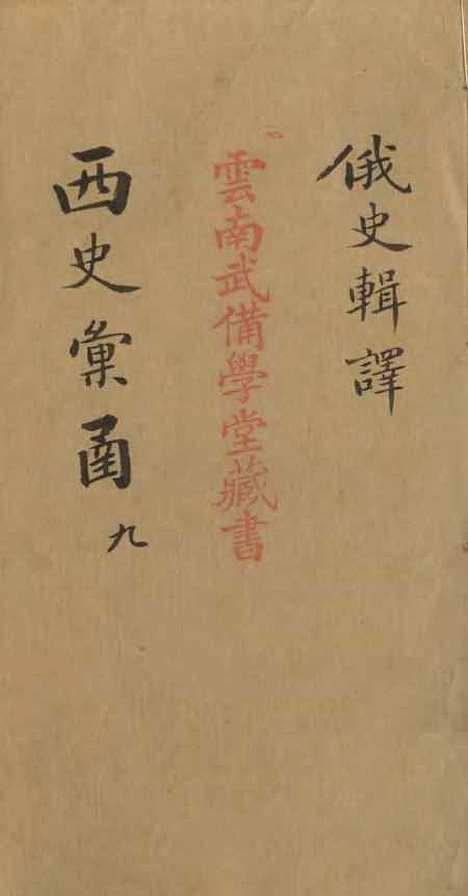 俄史輯譯
雲南武備學堂藏書
西史彙函
九